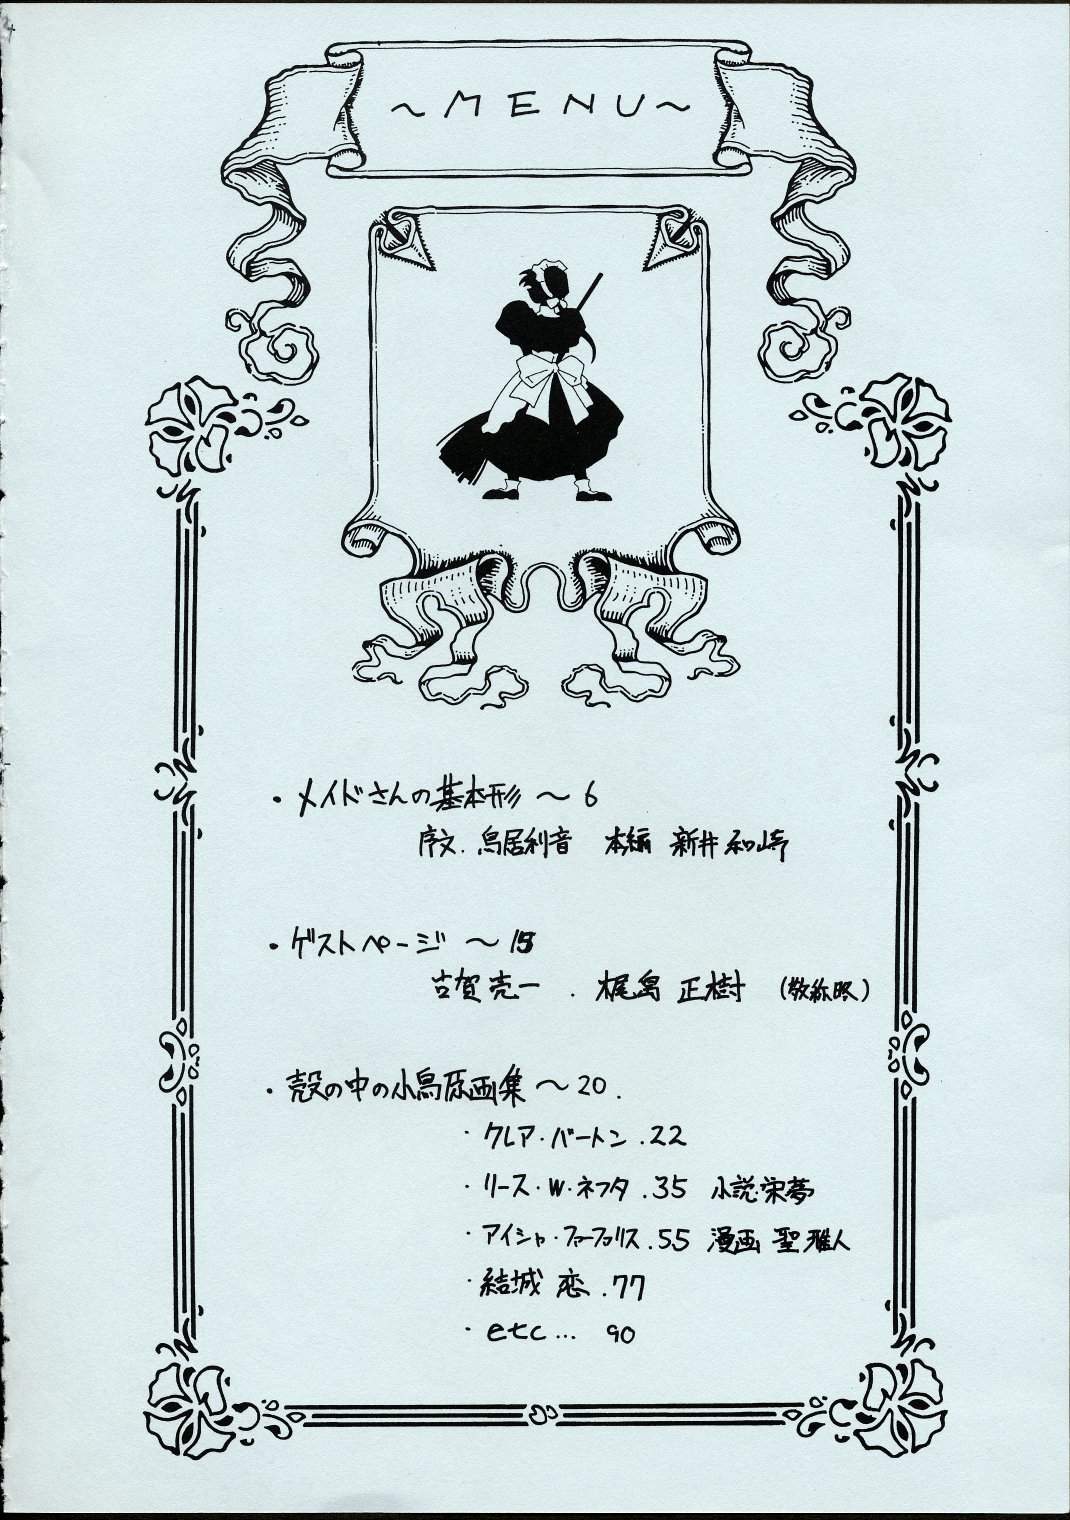 ～MENU～
・メイドさんの基本形 ～ 6
序文. 鳥居利音 本編 新井和崎
・ゲストページ ～ 15
古賀亮一 . 梶島 正樹 (敬称略)
・殻の中の小鳥原画集 ～ 20.
・クレア・バートン .22
・リース・W・ネフタ .35 小説・栄夢
・アイシャ・ファーファリス .55 漫画 聖 雅人
・結城 恋 .77
・etc... 90